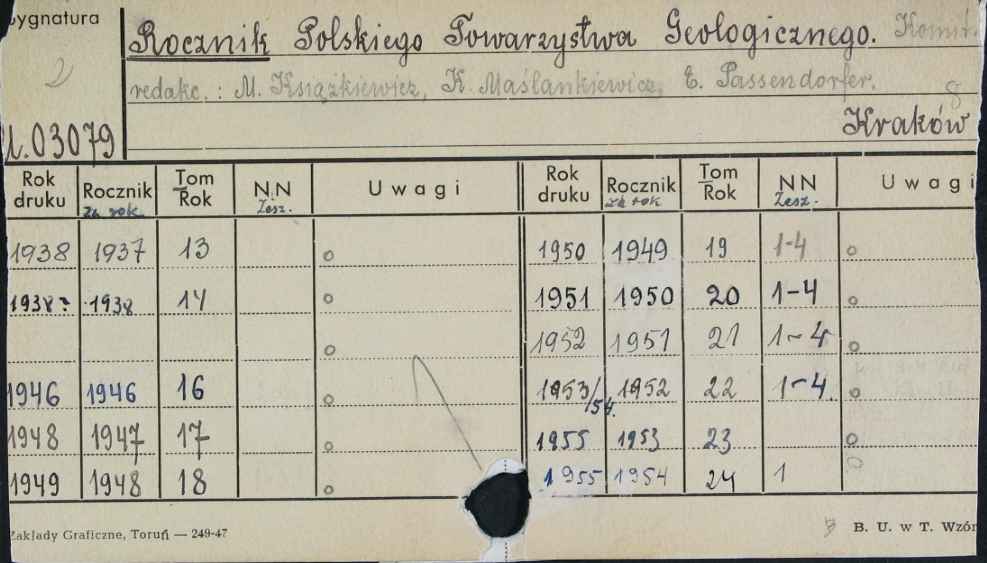 Sygnatura
Rocznik Polskiego Towarzystwa Geologicznego. Komit.
2
redakc.: M. Książkiewicz, K. Maślankiewicz, E. Passendorfer.
8
Kraków
03079
Rok druku Rocznik za rok Tom/Rok NN Zesz. Uwagi Rok druku Rocznik za rok Tom/Rok NN Zesz. Uwagi
1938 1937 13 1950 1949 19 1-4
1938? 1938 14 1951 1950 20 1-4
1952 1951 21 1-4
1946 1946 16 1953/54. 1952 22 1-4.
1948 1947 17 1955 1953 23
1949 1948 18 1955 1954 24 1
Zakłady Graficzne, Toruń — 249-47
B. U. w T. Wzór